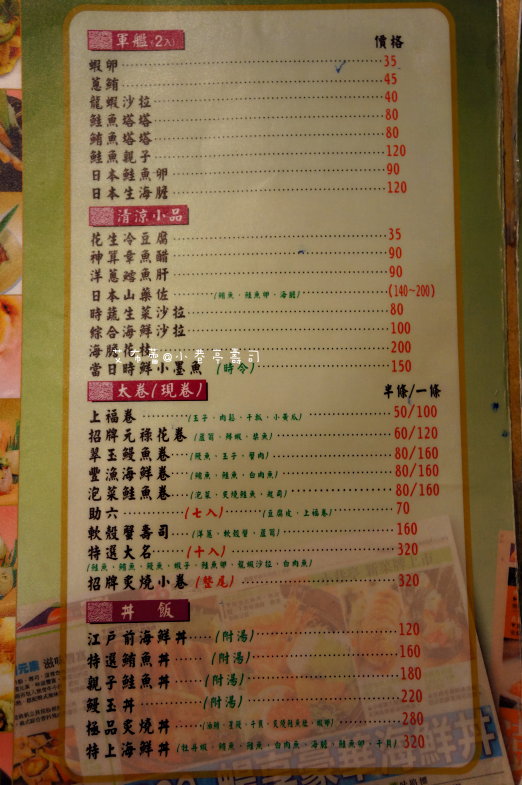 軍艦(2入) 價格
蝦卵 35
蔥鮪 45
龍蝦沙拉 40
鮭魚塔塔 80
鮪魚塔塔 80
鮭魚親子 120
日本鮭魚卵 90
日本生海膽 120
清涼小品
花生冷豆腐 35
神算章魚醋 90
洋蔥鱈魚肝 90
日本山藥佐 (鮪魚、鮭魚卵、海膽) (140~200)
時蔬生菜沙拉 80
綜合海鮮沙拉 100
海膽花枝 200
艾布蕾@小巷亭壽司
當日時鮮小墨魚 (時令) 150
太卷(現卷) 半條/一條
上福卷 (玉子、肉鬆、干瓢、小黃瓜) 50/100
招牌元祿花卷 (蘆筍、鮮蝦、柴魚) 60/120
翠玉鰻魚卷 (鰻魚、玉子、蟹肉) 80/160
豐漁海鮮卷 (鮪魚、鮭魚、白肉魚) 80/160
泡菜鮭魚卷 (泡菜、炙燒鮭魚、起司) 80/160
助六 (七入) (豆腐皮、上福卷) 70
軟殼蟹壽司 (洋蔥、軟殼蟹、蘆筍) 160
特選大名 (十入) 320
(鮭魚、鮪魚、鰻魚、蝦子、鮭魚卵、龍蝦沙拉、白肉魚)
招牌炙燒小卷 (整尾) 320
丼 飯
江戶前海鮮丼 (附湯) 120
特選鮪魚丼 (附湯) 160
親子鮭魚丼 (附湯) 180
鰻玉丼 (附湯) 220
極品炙燒丼 (油鮪、星鰻、干貝、炙燒鮭魚肚、蝦卵) 280
特上海鮮丼 (牡丹蝦、鮪魚、鮭魚、白肉魚、海膽、鮭魚卵、干貝) 320